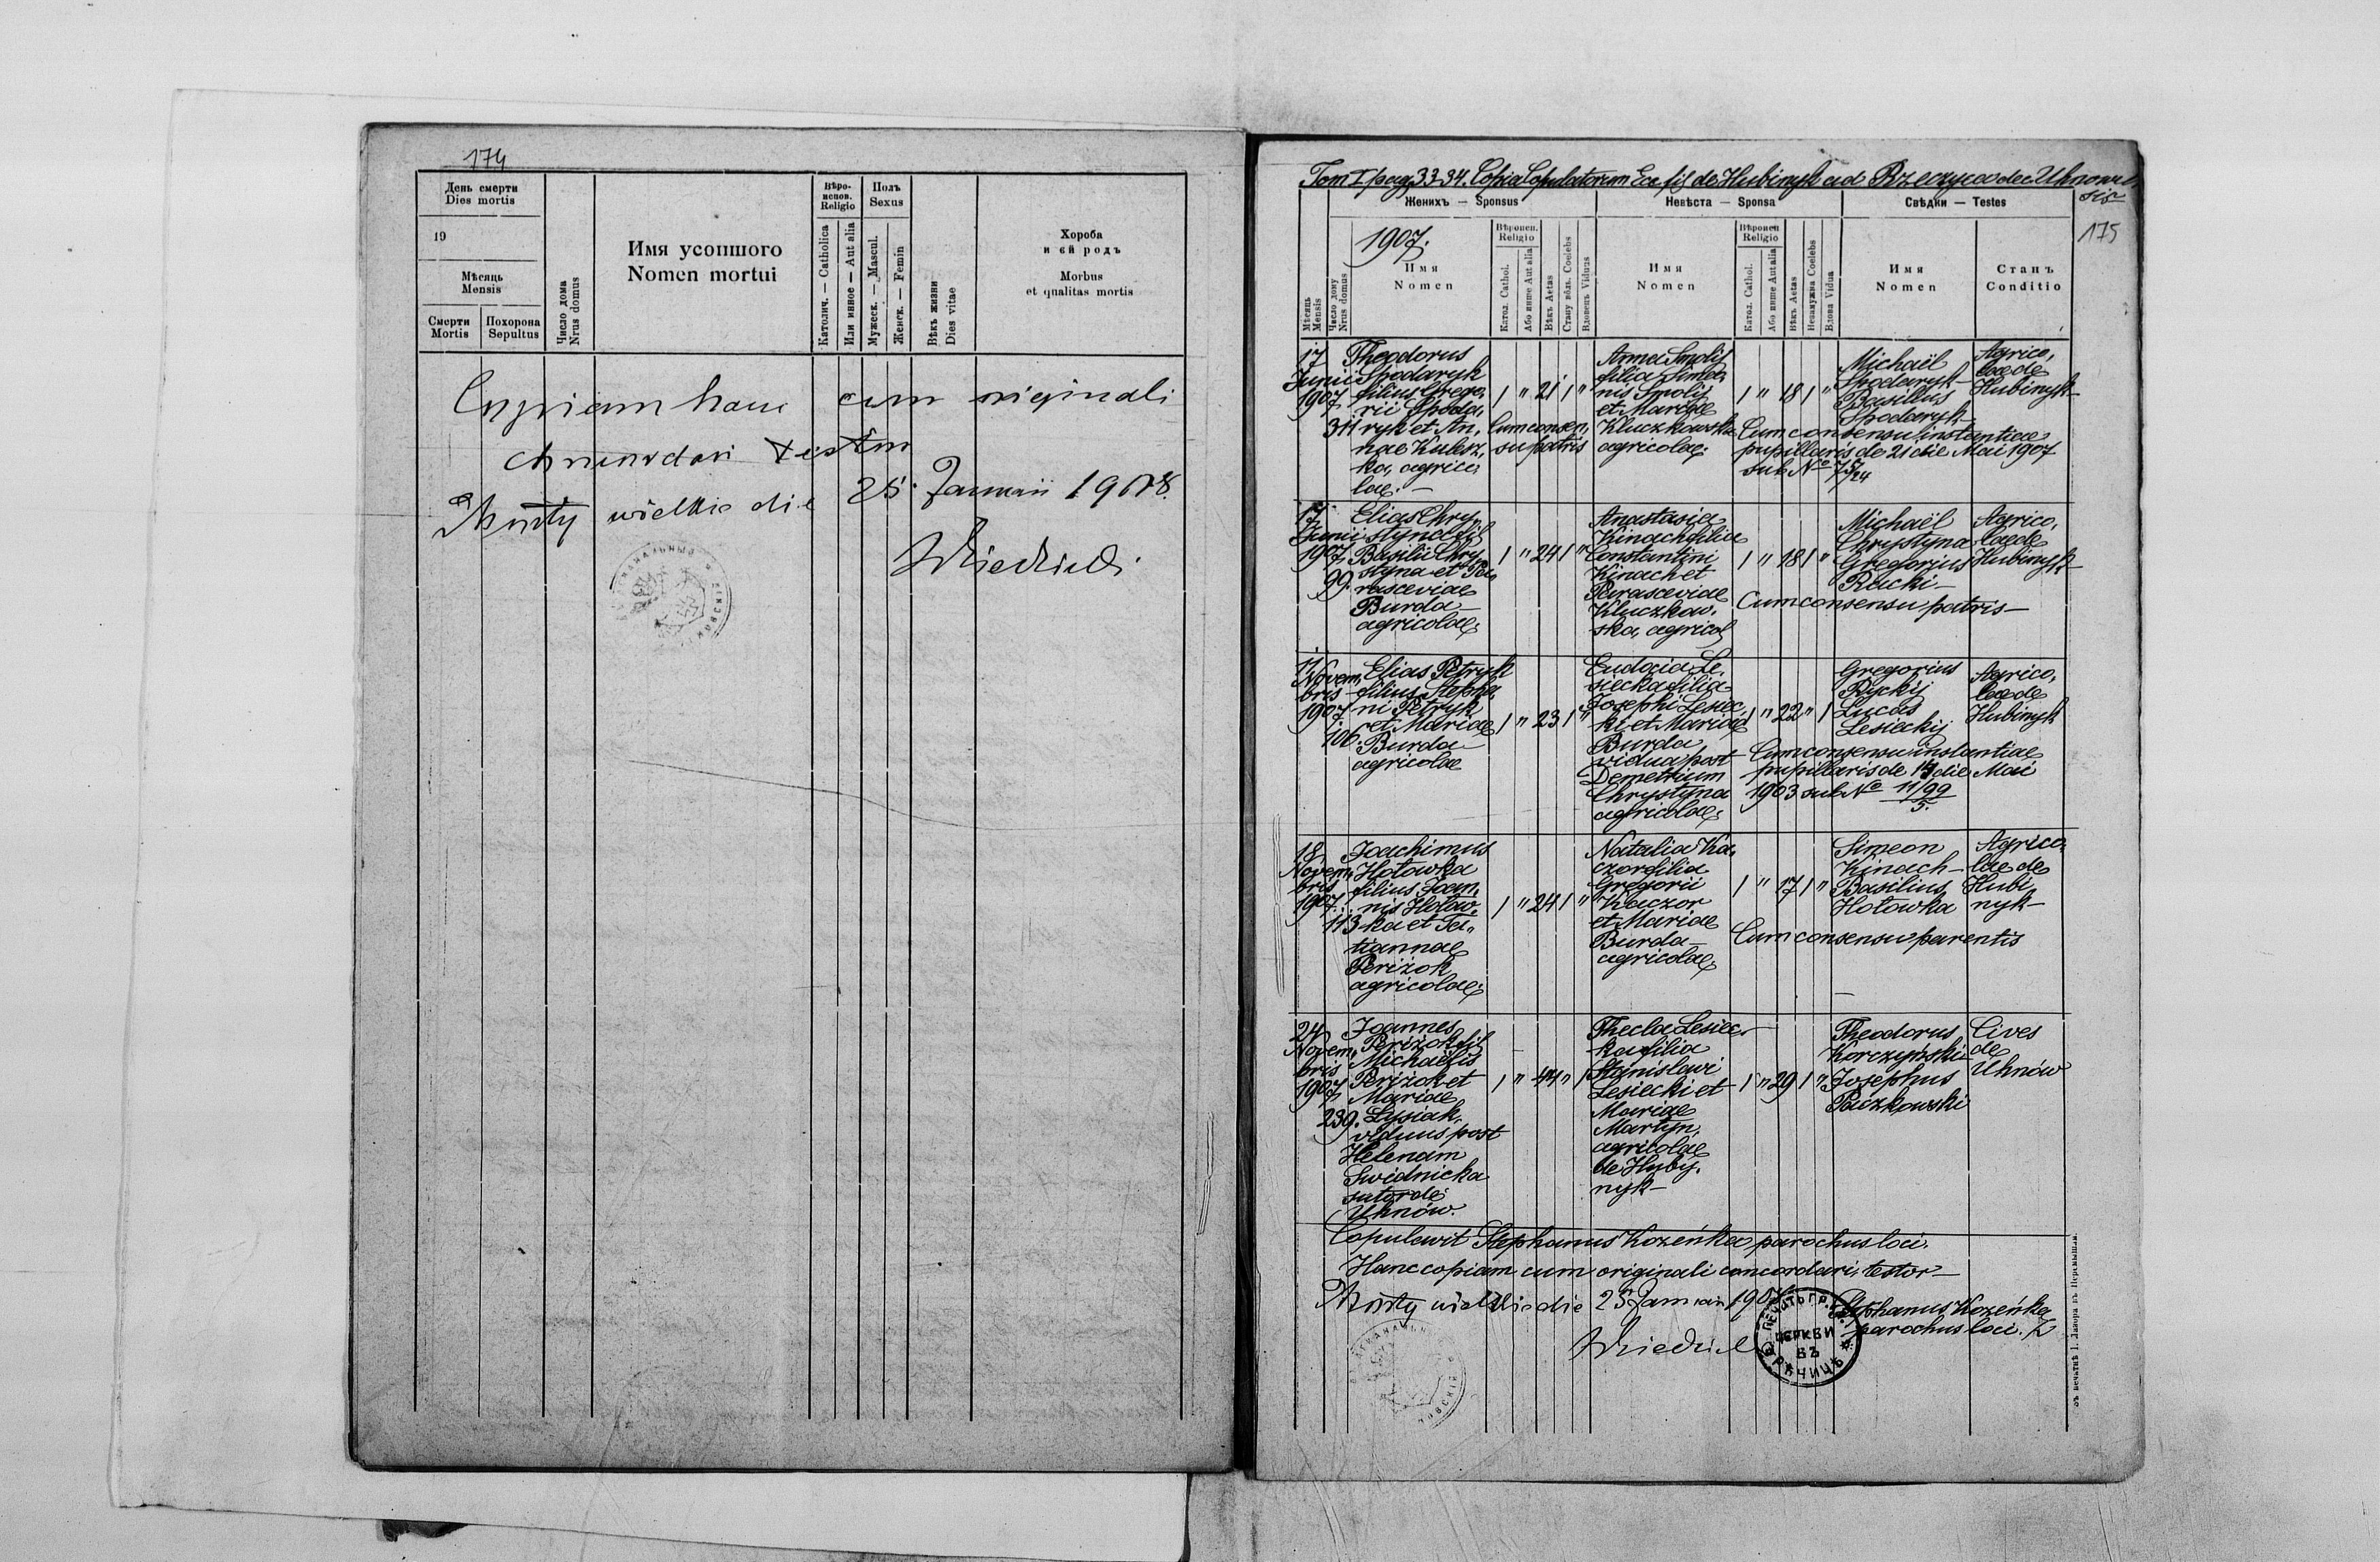 174
День смерти
Dies mortis
19
Мѣсяць
Mensis
Смерти
Mortis
Похорона
Sepultus
Число дома
Nrus domus
Имя усопшого
Nomen mortui
Вѣро-
испов.
Religio
Католич. — Catholica
Или инное — Aut alia
Полъ
Sexus
Мужеск. — Mascul.
Женск. — Femin
Вѣкъ жизни
Dies vitae
Хороба
и ей родъ
Morbus
et qualitas mortis
Copiam hanc cum originali
testor
Mosty wielkie die 25. Januarii 1908.
Tom I pag 33-34. Copia Copulatorum Eccl fil de Hubinyk ad Rzeczyca dec Uhnovien
sis
175
Женихъ — Sponsus
Невѣста — Sponsa
Свѣдки — Testes
Мѣсяць
Mensis
Число дому
Nrus domus
1907.
Имя
Nomen
Вѣроисп.
Religio
Катол. Cathol.
Або инше Aut alia
Вѣкъ Aetas
Стану вѣль. Coelebs
Вдовець Viduus
Имя
Nomen
Вѣроисп
Religio
Катол. Cathol.
Або инше Aut alia
Вѣкъ Aetas
Незамужна Coelebs
Вдова Vidua
Имя
Nomen
Станъ
Conditio
17
Junii
1907.
311
Theodorus
Spodaryk
filius Grego,
rii Spoda,
ryk et An,
nae Kulesz,
ka, agrico
lae. —
1 " 21 1 "
Cum consen,
su patris
Anna Smolij
filia Simeo,
nis Smolij
et Mariae
Kluczkowska
agricolae.
1 " 18 1 "
Michaël
Spodaryk —
Basilius
Spodaryk —
Agrico,
lae de
Hubinyk —
Cum consensu instantiae
pupillaris de 21 die Mai 1907
sub No
17
Junii
1907.
99.
Elias Chry,
styna fil
Basilii Chry
styna et Pa,
rasceviae
Burda —
agricolae.
1 " 24 1 "
Anastasia
Kinach filia
Constantini
Kinach et
Parasceviae
Kluczkow.
ska, agricol
1 " 18 1 "
Michaël
Chrystyna
Gregorius
Rucki —
Agrico,
lae de
Hubinyk —
Cum consensu patris —
Novem,
bris
1907.
106.
Elias Petryk
filius Stepha,
ni Petryk
et Mariae
Burda —
agricolae
1 " 23 1 "
Eudocia Le,
siecka filia
Josephi Lesiec,
ki et Mariae
Burda
vidua post
Demetrium
Chrystyna
agricolae.
1 " 22 " 1
Gregorius
Ryckij
Lucas
Lesieckij
Agrico,
lae de
Hubinyk
Cum consensu instantiae
pupillaris de 14 die Mai
1903 sub No 11/99
5.
18.
Novem,
bris
1907.
113
Joachimus
Hołowka
filius Joan,
nis Hołow,
ka et Ta,
tiannae
Periżok
agricolae.
1 " 24 1 "
Natalia Ka,
czor filia
Gregorii
Kaczor
et Mariae
Burda —
agricolae.
1 " 17 1 "
Simeon
Kinach —
Basilius
Hołowka
Agrico,
lae de
Hubi
nyk —
Cum consensu parentis
24
Novem,
bris
1907
239.
Joannes
Periżok fil
Michaëlis
Periżok et
Mariae
Łysiak,
viduus post
Helenam
Swidnicka
sutor de
Uhnów.
1 " 44 " 1
Thecla Lesiec
ka filia
Stanislawi
Lesiecki et
Mariae
Martyn,
agricolae
de Huby.
nyk —
1 " 29 1 "
Theodorus
Korczyński
Josephus
Paczkowski
Cives
de
Uhnów
Copulavit Stephanus Kozeńka parochus loci.
Hanc copiam cum originali concordari testor —
Mosty wielkie die 25 Januarii 190
Stephanus Kozeńka
parochus loci.
ЦЕРКВИ
ВЪ